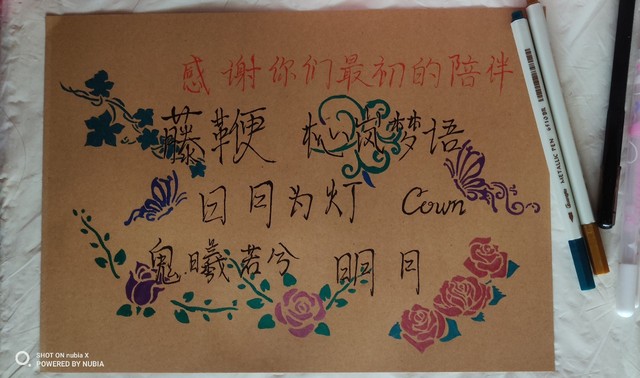 感谢你们最初的陪伴
藤鞭 松岚梦语
日月为灯 Cown
鬼曦若兮 明月
SHOT ON nubia X
POWERED BY NUBIA